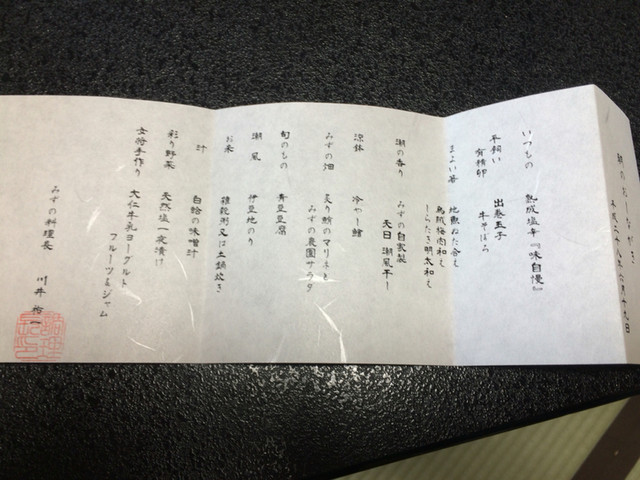 朝のおしながき
平成二十八年六月十九日
いつもの　熟成塩辛『味自慢』
平飼い　出巻玉子
有精卵　牛そぼろ
まよい箸　地蛸ぬた合え
烏賊梅肉和え
しらたき明太和え
潮の香り　みずの自家製
天日 潮風干し
涼鉢　冷やし鱠
みずの畑　炙り鮪のマリネと
みずの農園サラダ
旬のもの　青豆豆腐
潮風　伊豆地のり
お米　雑穀粥又は土鍋炊き
汁　白蛤の味噌汁
彩り野菜　天然塩一夜漬け
女将手作り　大仁牛乳ヨーグルト
フルーツ&ジャム
みずの料理長　川井 裕一